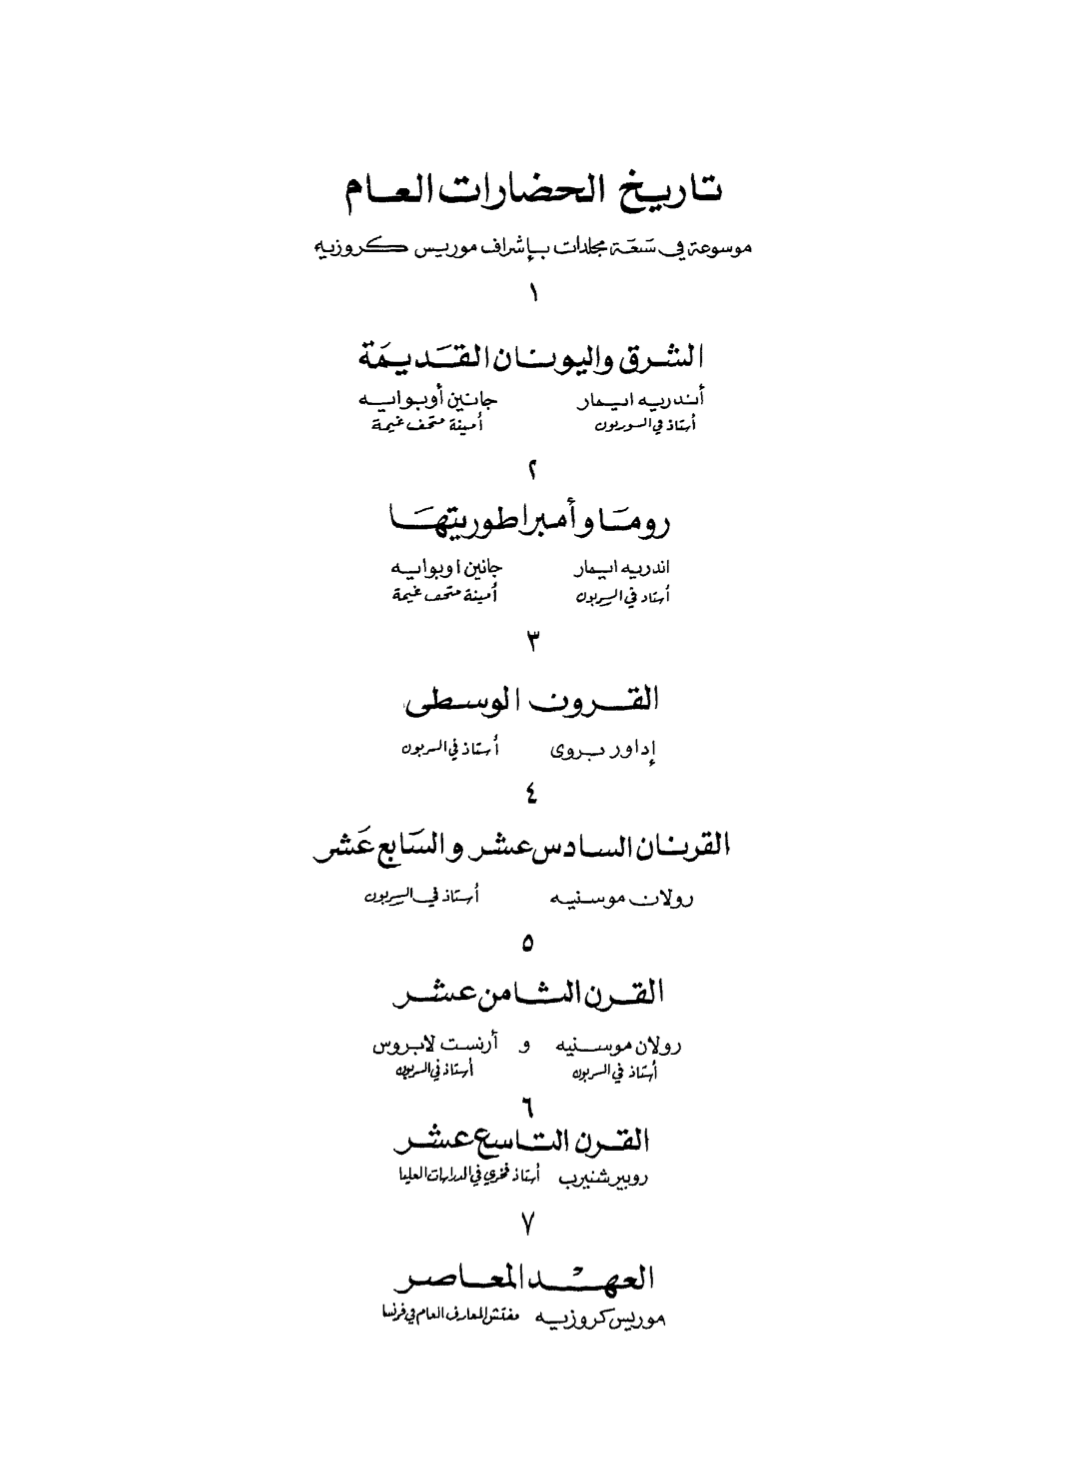 تاريخ الحضارات العام
موسوعة في سبعة مجلدات بإشراف موريس كروزيه
١
الشرق واليونان القديمة
أندريه ايمار جانين أوبوايه
أستاذ في السوربون أمينة متحف غيمة
٢
روما وأمبراطوريتها
اندريه ايمار جانين اوبوايه
أستاذ في السربون أمينة متحف غيمة
٣
القرون الوسطى
إداور بروى أستاذ في السربون
٤
القرنان السادس عشر والسابع عشر
رولان موسنيه أستاذ في السربون
٥
القرن الثامن عشر
رولان موسنيه و أرنست لابروس
أستاذ في السربون أستاذ في السربون
٦
القرن التاسع عشر
روبير شنيرب أستاذ فخري في الدراسات العليا
٧
العهد المعاصر
موريس كروزيه مفتش المعارف العام في فرنسا